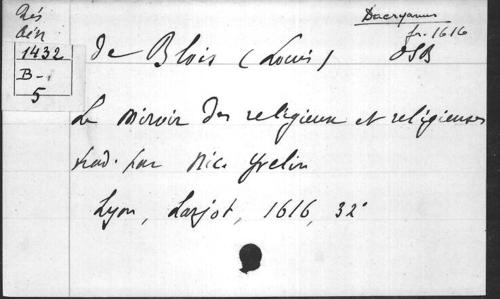 Rés
Dacryanus
fr. 1616
1432
B-
5
de Blois (Louis) OSB
Le miroir des religieux et religieuses
trad. par Nice Yvelin
Lyon, Larjot, 1616, 32°